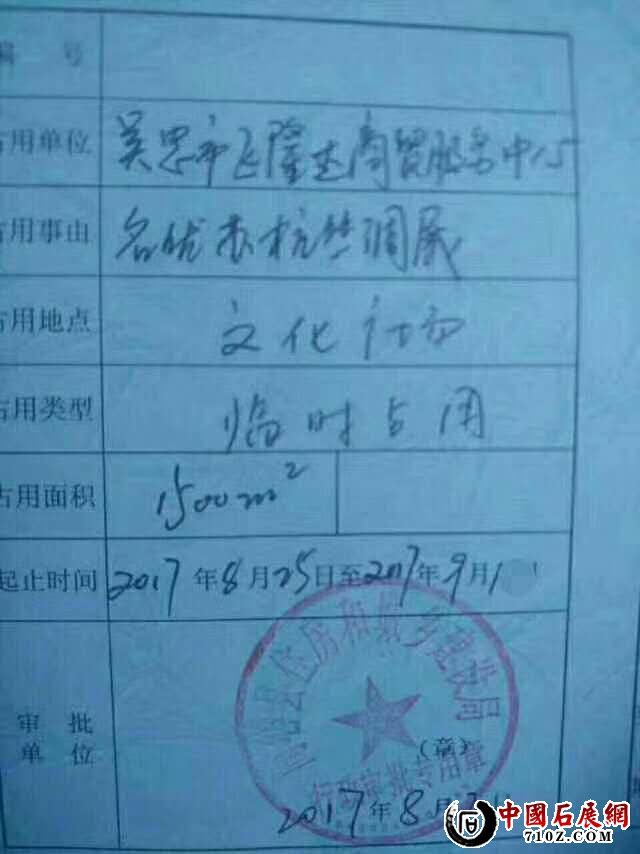 编 号
占用单位 吴忠市飞隆达商贸服务中心
占用事由 名优苏杭丝绸展
占用地点 文化广场
占用类型 临时占用
占用面积 1500m²
起止时间 2017年8月25日至2017年9月1
县住房和城乡建设局
审 批
单 位
(章)
行政审批专用章
2017年8月
中國石展網
7102.COM